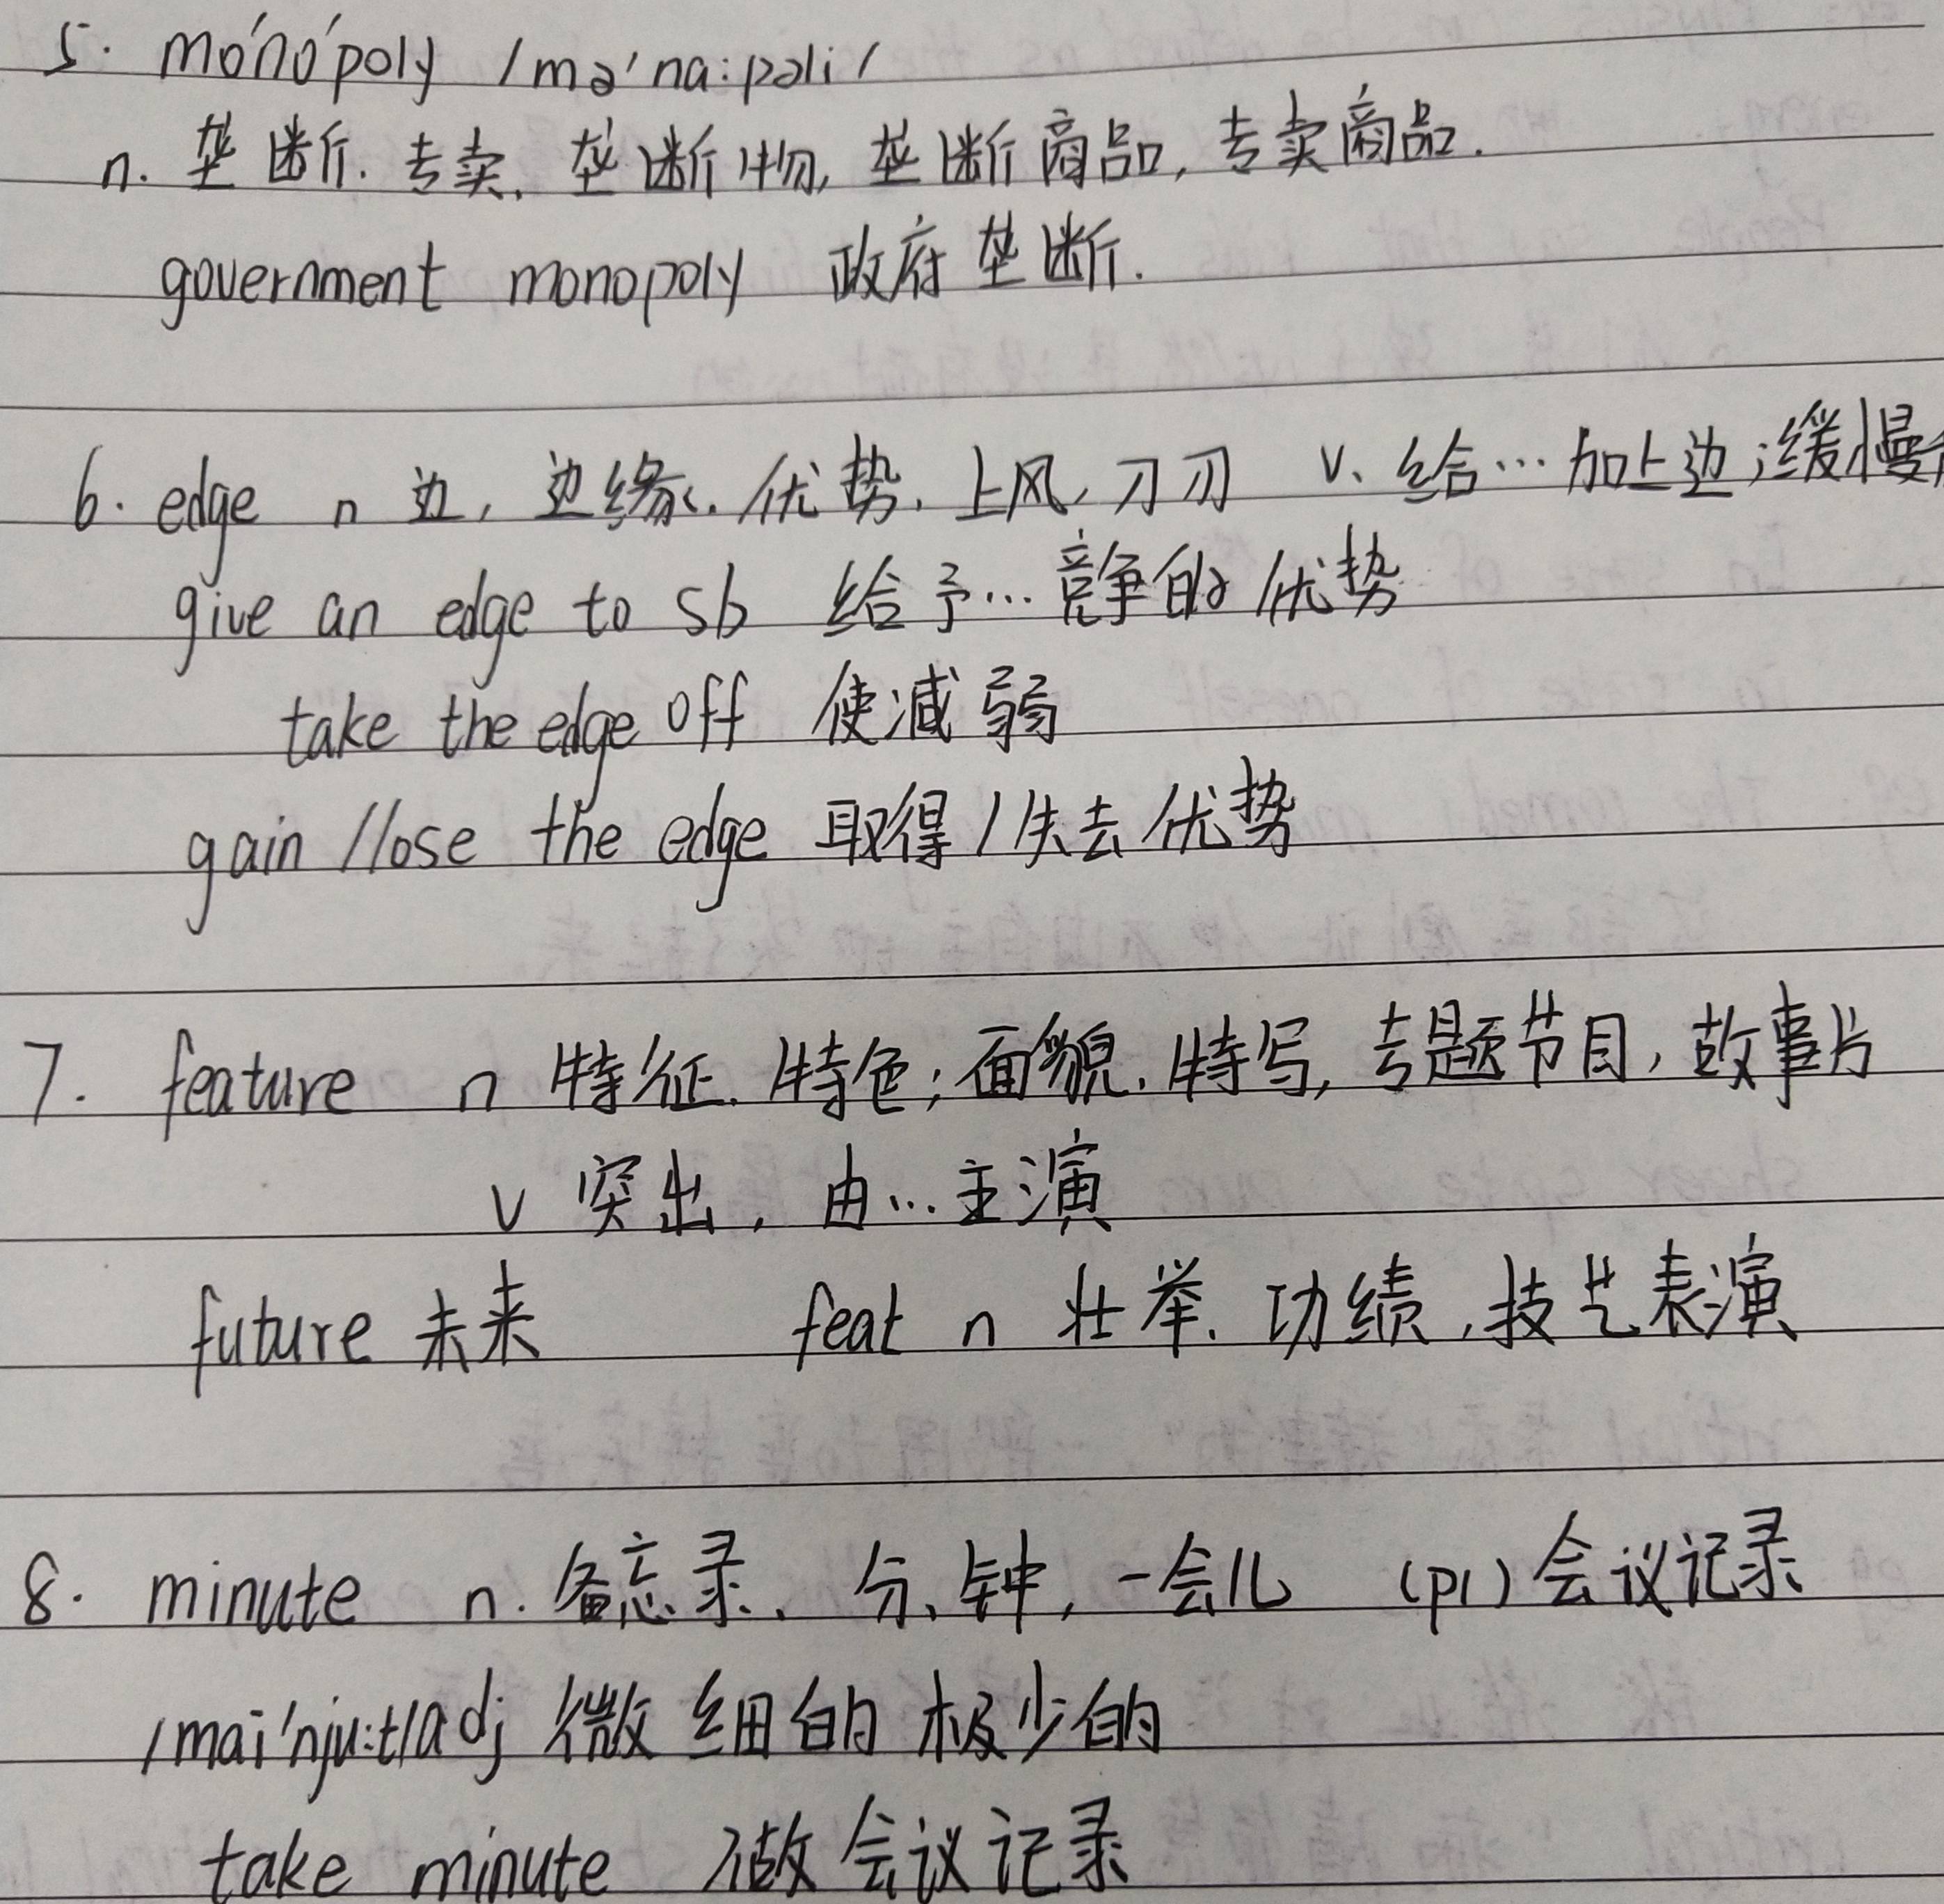 5. mo'no'poly /mə'na:pəli/
n. 垄断. 专卖. 垄断物, 垄断商品, 专卖商品.
government monopoly 政府垄断.
6. edge n 边, 边缘. 优势. 上风, 刀刃 v. 给…加上边; 缓慢
give an edge to sb 给予…竞争的优势
take the edge off 使减弱
gain /lose the edge 取得/失去优势
7. feature n 特征. 特色; 面貌. 特写, 专题节目, 故事片
v 突出, 由…主演
future 未来 feat n 壮举. 功绩, 技艺表演
8. minute n. 备忘录、分、钟, 一会儿 (pl) 会议记录
/mai'nju:t/adj 微细的 极少的
take minute 做会议记录